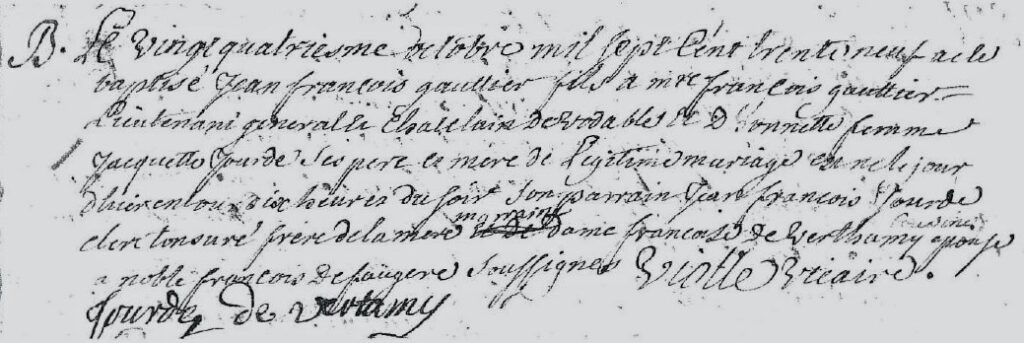 B. Le vingt quatriesme octobre mil sept cent trente neuf a ete
baptisé Jean françois gaultier fils a mre françois gaultier
Lieutenant general et Chatelain de vodable et d honnette femme
Jacquette Jourde ses pere et mere de legitime mariage eu ne le jour
dhier entour dix heures du soir son parrain Jean françois Jourde
clerc tonsuré frere de la mere marraine dame françoise de verthamy epouse
a noble françois de faugere soussignes Viallle vicaire.
Jourde de vertamy